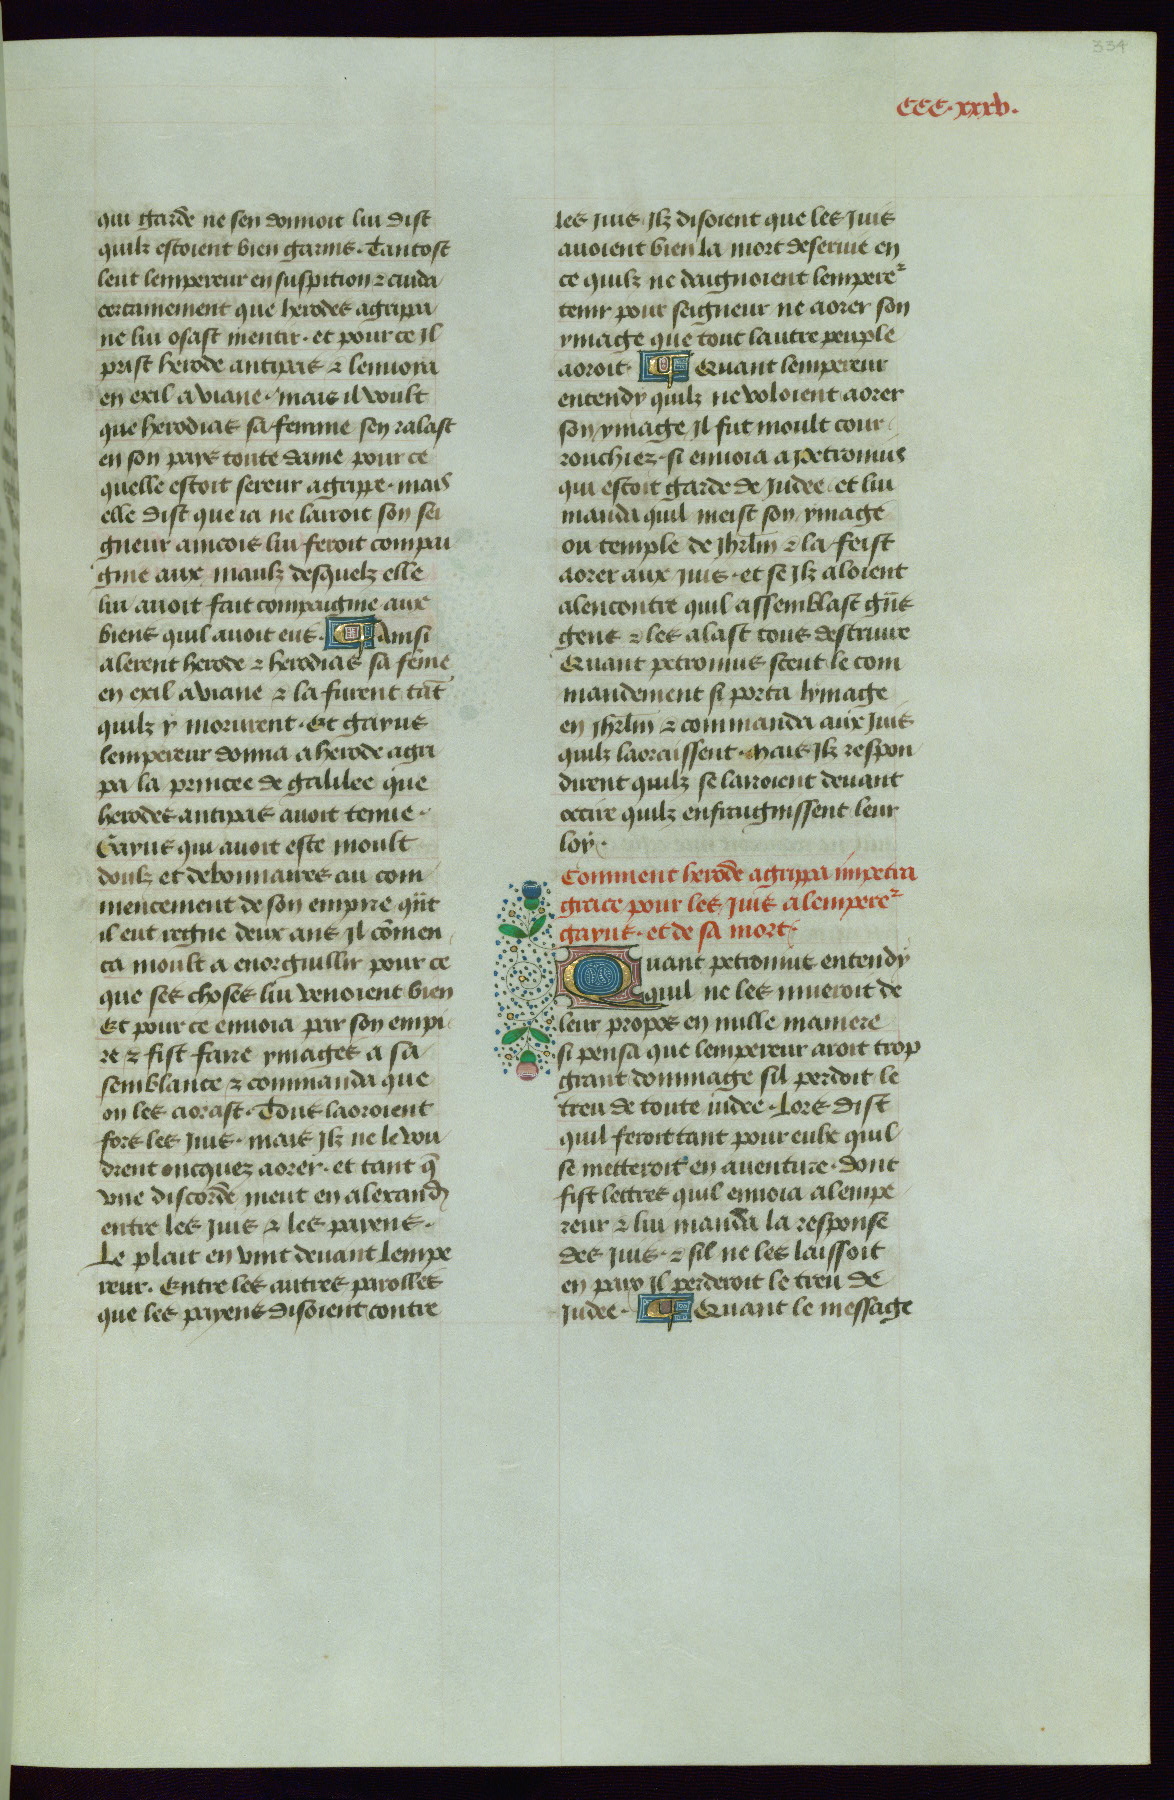 334
CCC.xxxv.
qui garde ne sen donnoit lui dist
quilz estoient bien garnis. Tantost
leut lempereur en suspition & cuida
certainement que herodes agrippa
ne lui osast mentir. et pour ce Il
prist herode antipas & lenuoia
en exil a viane. mais il voult
que herodias sa femme sen ralast
en son pays toute dame pour ce
quelle estoit sereur agrippe. mais
elle dist que ia ne lairoit son sei
gneur aincois lui feroit compai
gnie aux maulz desquelz elle
lui auoit fait compaignie aux
biens quil auoit eus. Ainsi
alerent herode & herodias sa fẽme
en exil a viane & la furent tãt
quilz y morurent. Et gayus
lempereur donna a herode agri
pa la princee de galilee que
herodes antipas auoit tenue.
Gayus qui auoit este moult
doulz et debonnaires au com
mencement de son empire qñt
il eut regne deux ans Il cõmen
ca moult a enorguillir pour ce
que ses choses lui venoient bien
Et pour ce enuoia par son empi
re & fist faire ymages a sa
semblance & commanda que
on les aorast. Tous laoroient
fors les Juis. mais Ilz ne le vou
drent oncquez aorer. et tant q̃
vne discorde meut en alexand
entre les Juis & les payens.
Le plait en vint deuant lempe
reur. Entre les autres parolles
que les payens disoient contre
les Juis Ilz disoient que les Juis
auoient bien la mort deseruie en
ce quilz ne daignoient lempere
tenir pour seigneur ne aorer son
ymage que tout lautre peuple
aoroit. Quant lempereur
entendy quilz ne voloient aorer
son ymage Il fut moult cour
rouchiez. si enuoia a petronius
qui estoit garde de Judee. et lui
manda quil meist son ymage
ou temple de Jhrlm & la feist
aorer aux Juis. et se Ilz aloient
alencontre quil assemblast gñs
gens & les alast tous destruire
Quant petronius sceut le com
mandement si porta lymage
en Jhrlm & commanda aux Juis
quilz laoraissent. Mais Ilz respon
dirent quilz se lairoient deuant
occire quilz enfraignissent leur
loy.
Comment herode agrippa impetra
grace pour les Juis a lempere
gayus. et de sa mort.
Quant petronius entendy
quil ne les mueroit de
leur propos en nulle maniere
si pensa que lempereur aroit trop
grant dommage sil perdoit le
treu de toute iudee. Lors dist
quil feroit tant pour eulx quil
se metteroit en auenture. dont
fist lettres quil enuoia a lempe
reur & lui manda la response
des Juis. & sil ne les laissoit
en paix Il perderoit le treu de
Judee. Quant le message